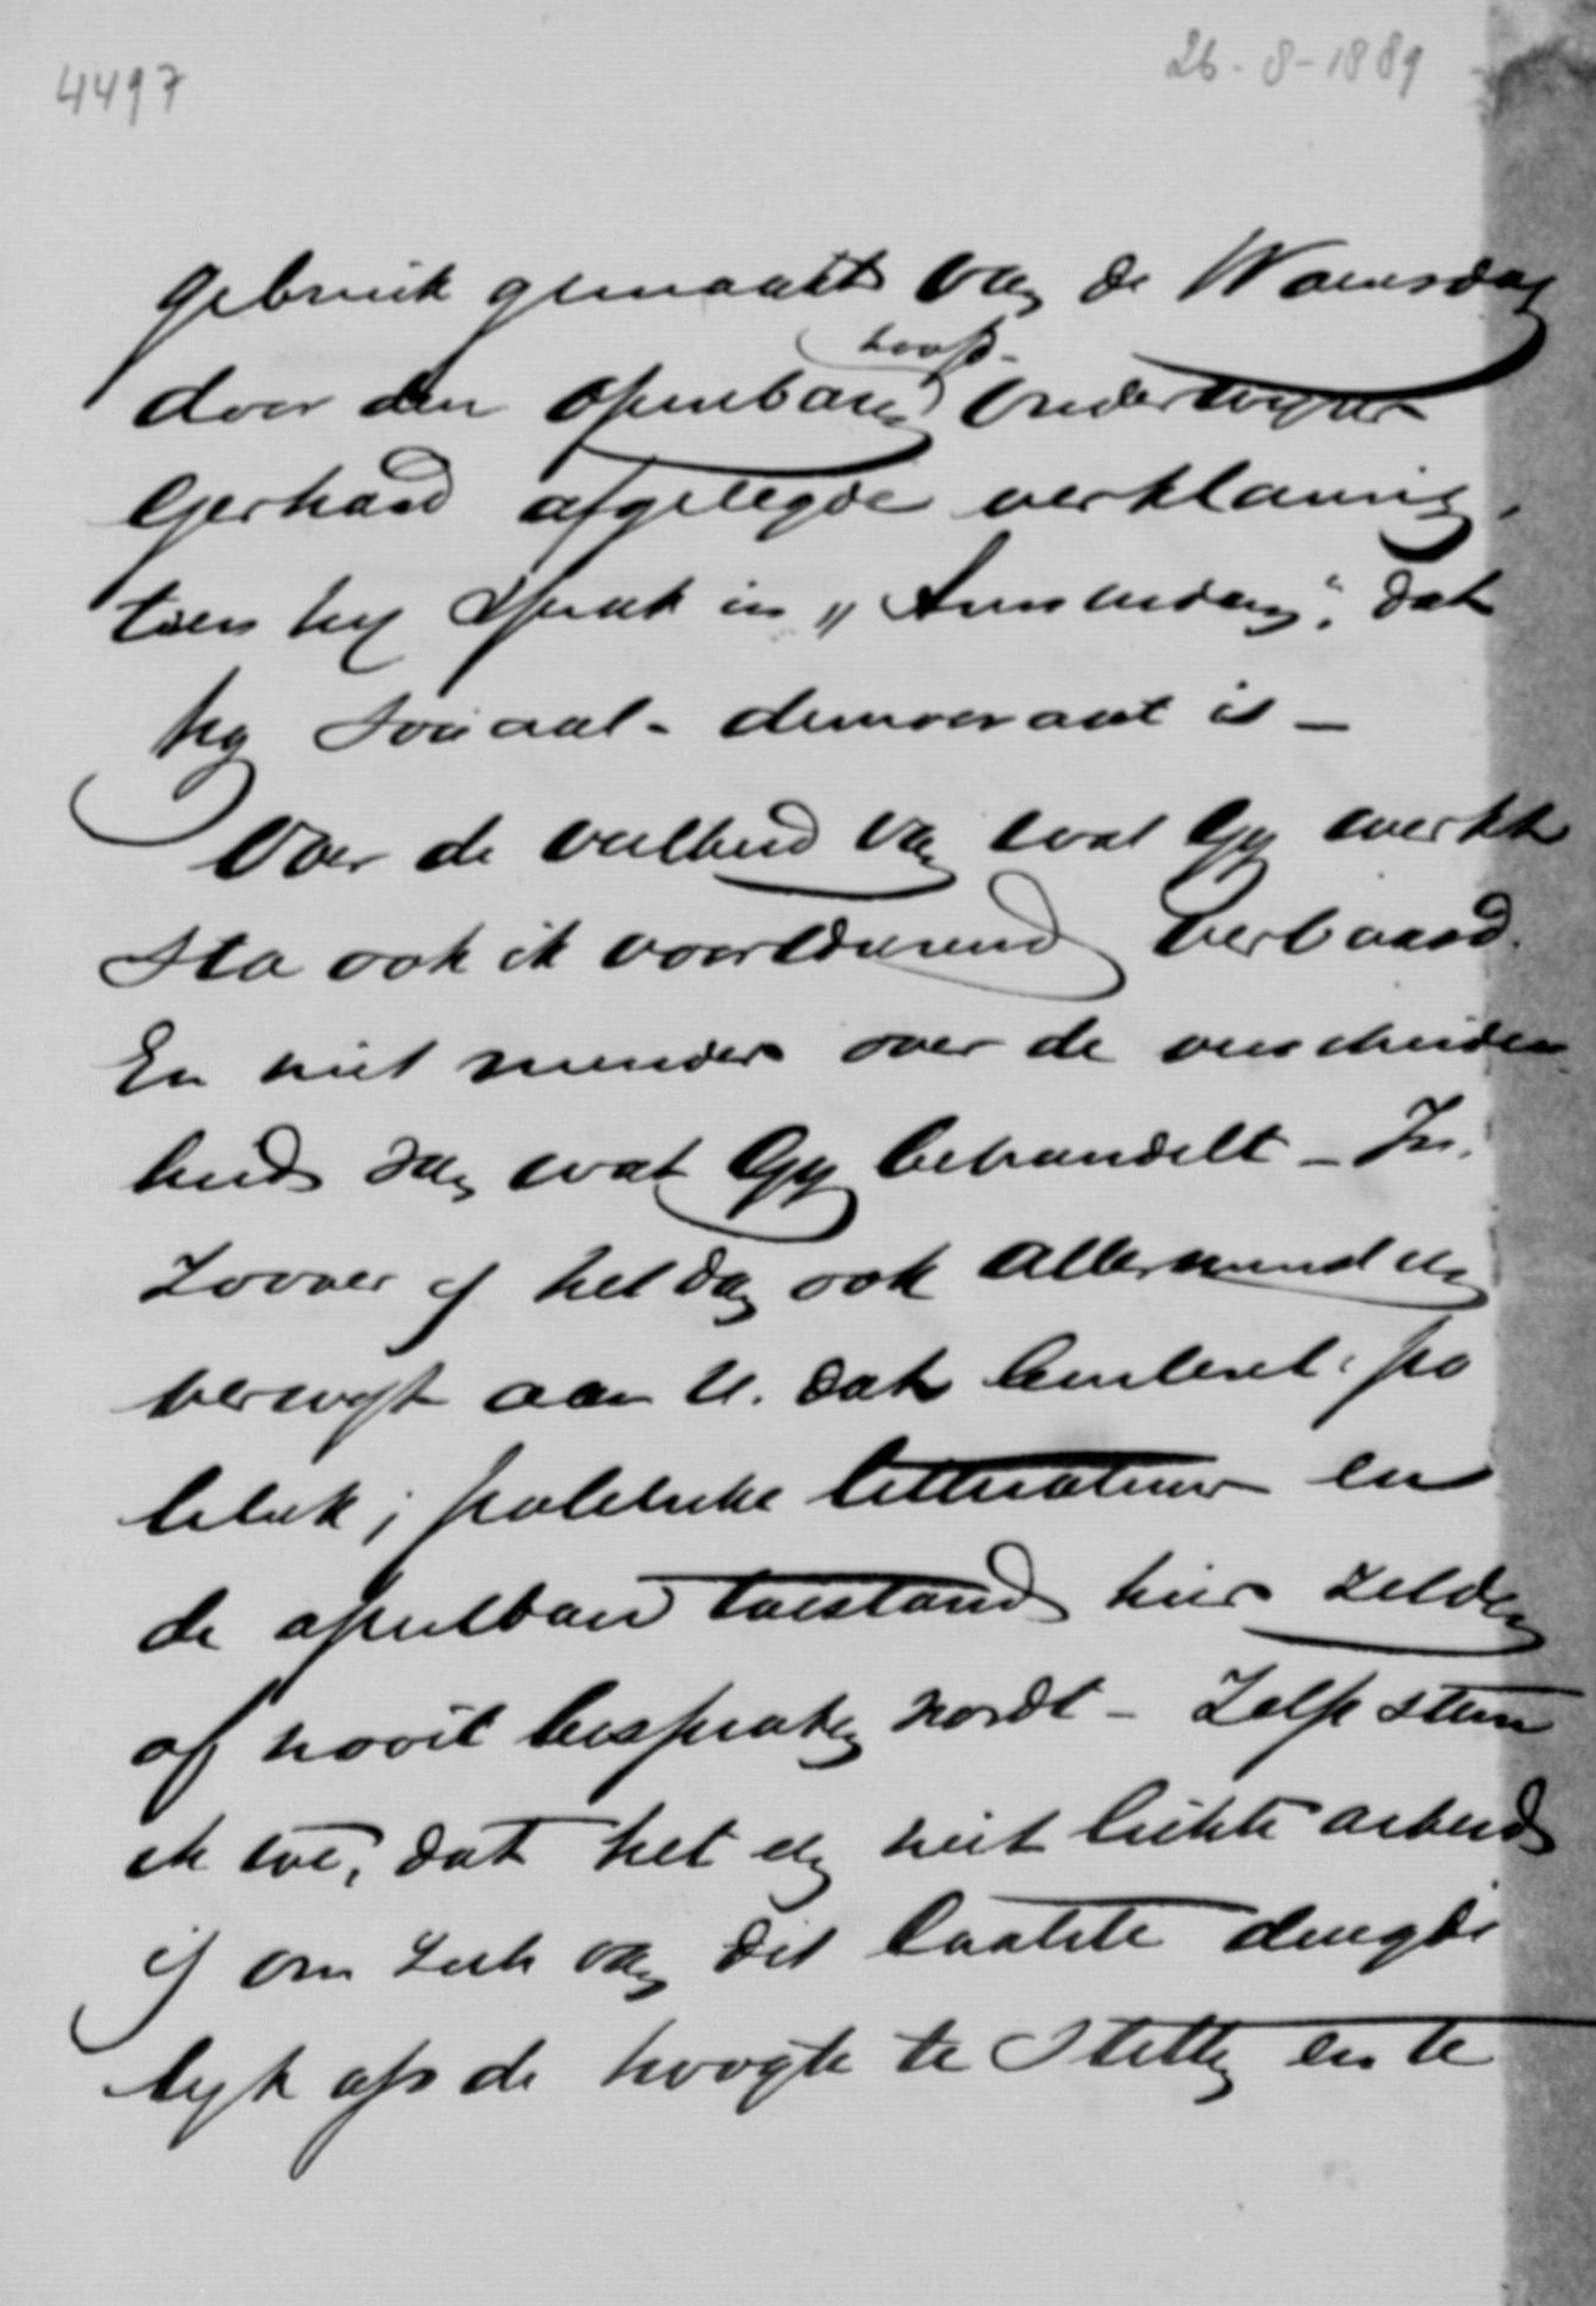 4497
26-8-1889
gebruik gemaakt van de Woensdag
door den openbaren hoofd-onderwijzer
Gerhard afgelegde verklaring,
toen hij sprak in „ dat
hij sociaal-democraat is —
Over de veelheid van wat Gij werkt
sta ook ik voortdurend verbaasd.
En niet minder over de verscheiden
heid van wat Gij behandelt — In
zoover is het dan ook allerminst een
verwijt aan U. dat buitenl. po
litiek; politieke litteratuur en
de openbare toestand hier zelden
of nooit besproken wordt — Zelfs stem
ik toe, dat het een niet lichte arbeid
is om zich van dit laatste deugde
lijk op de hoogte te stellen en te